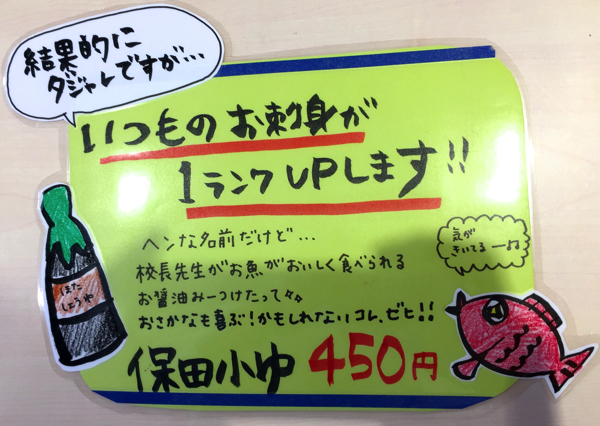 結果的に
ダジャレですが…
いつものお刺身が
1ランクUPします!!
ヘンな名前だけど…
校長先生がお魚がおいしく食べられる
お醤油みーつけたって々。
おさかなも喜ぶ!かもしれないコレ、ゼヒ!!
保田小ゆ 450円
気が
きいてるーね
ほた
しょうゆ